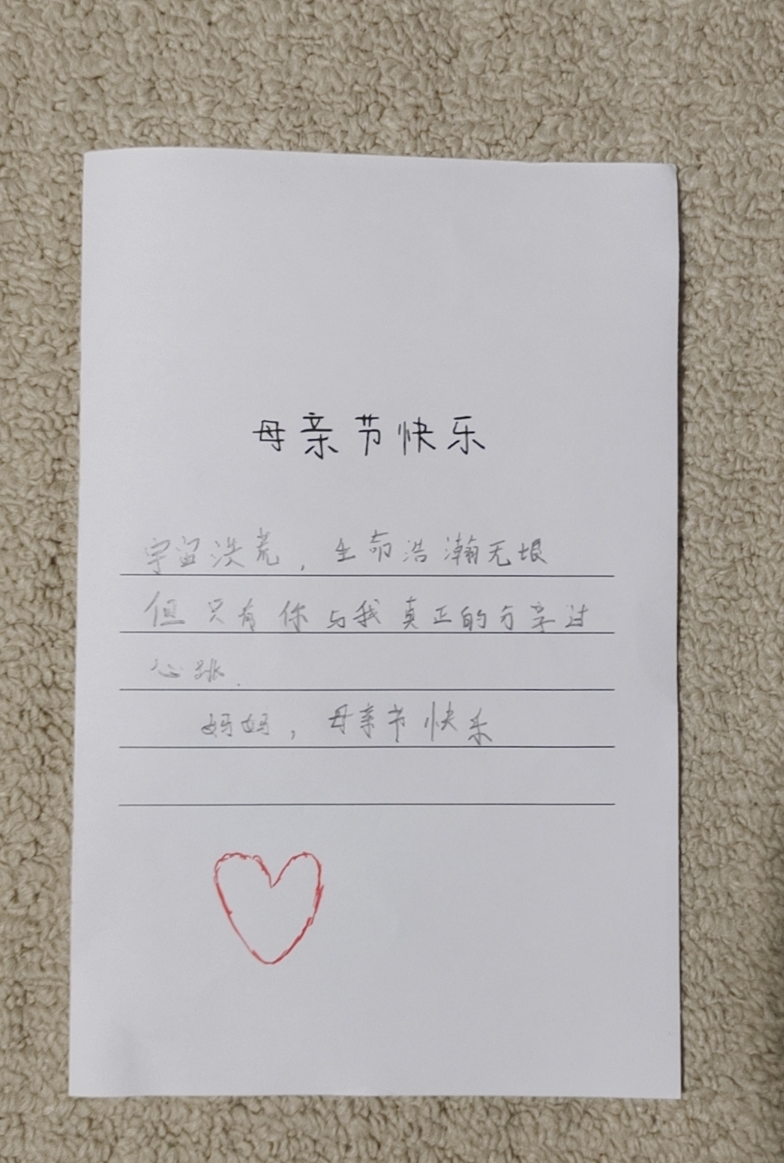 母亲节快乐
宇宙洪荒，生命浩瀚无垠
但只有你与我真正的分享过
心跳.
妈妈，母亲节快乐